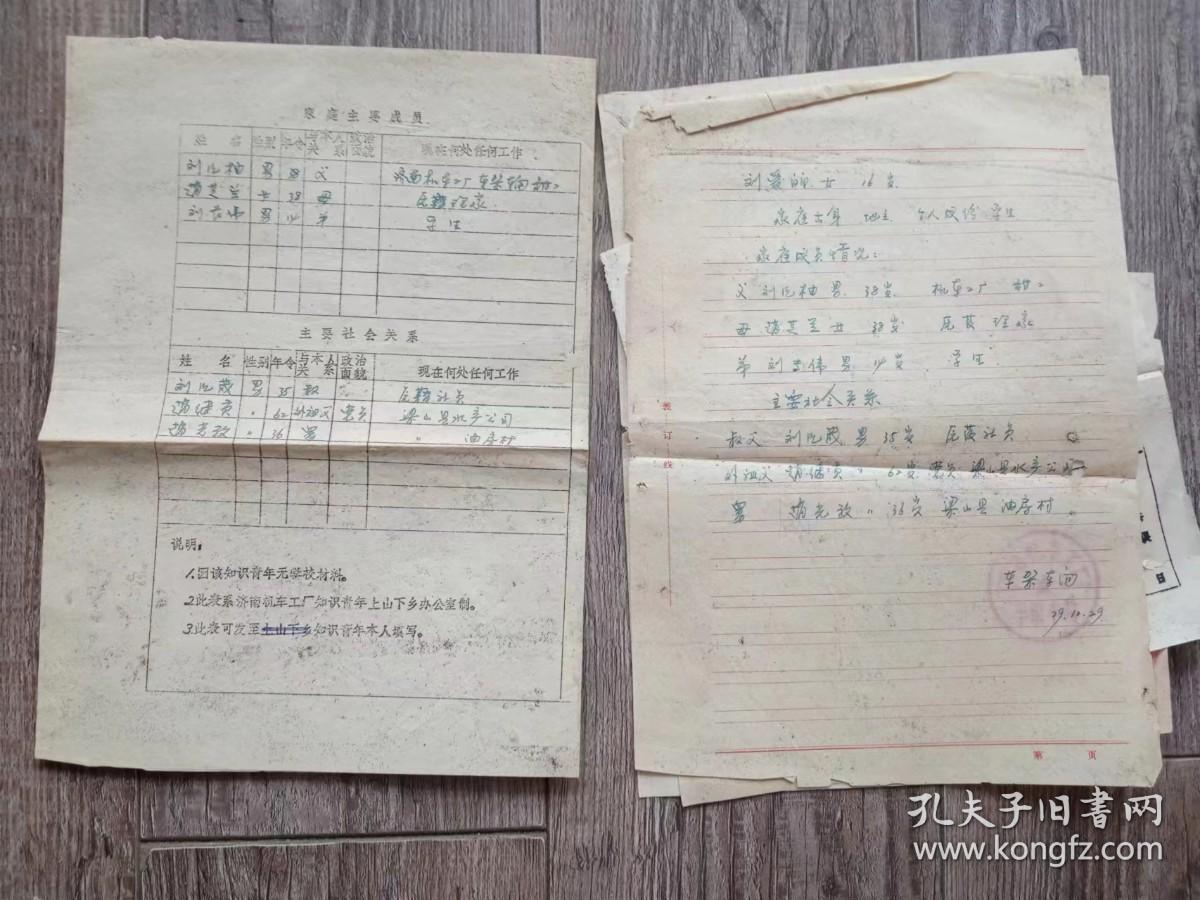 家庭主要成员
姓 名 性别 年令 与本人关系 政治面貌 现在何处任何工作
刘 柚 男 38 父 济南机车工厂车架车间 钳工
兰 女 38 母 理家
刘 伟 男 14 弟 学生
主要社会关系
姓 名 性别 年令 与本人关系 政治面貌 现在何处任何工作
刘 男 35 叔 社员
〃 62 外祖父 党员 梁山县水产公司
〃 36 舅 〃 油房村
说明:
1.因该知识青年无学校材料。
2.此表系济南机车工厂知识青年上山下乡办公室制。
3.此表可发至上山下乡知识青年本人填写。
刘爱 女 16岁
家庭出身 地主 个人成份 学生
家庭成员情况:
父 刘 柚 男 38岁 机车工厂 钳工
母 兰 女 38岁 理家
弟 刘 伟 男 14岁 学生
主要社会关系
叔父 刘 男 35岁 社员
外祖父 〃 62岁 党员 梁山县水产公司
舅 放 〃 36岁 梁山县油房村
车架车间
79.10.29
装订线
第 页
日
孔夫子旧书网
www.kongfz.com